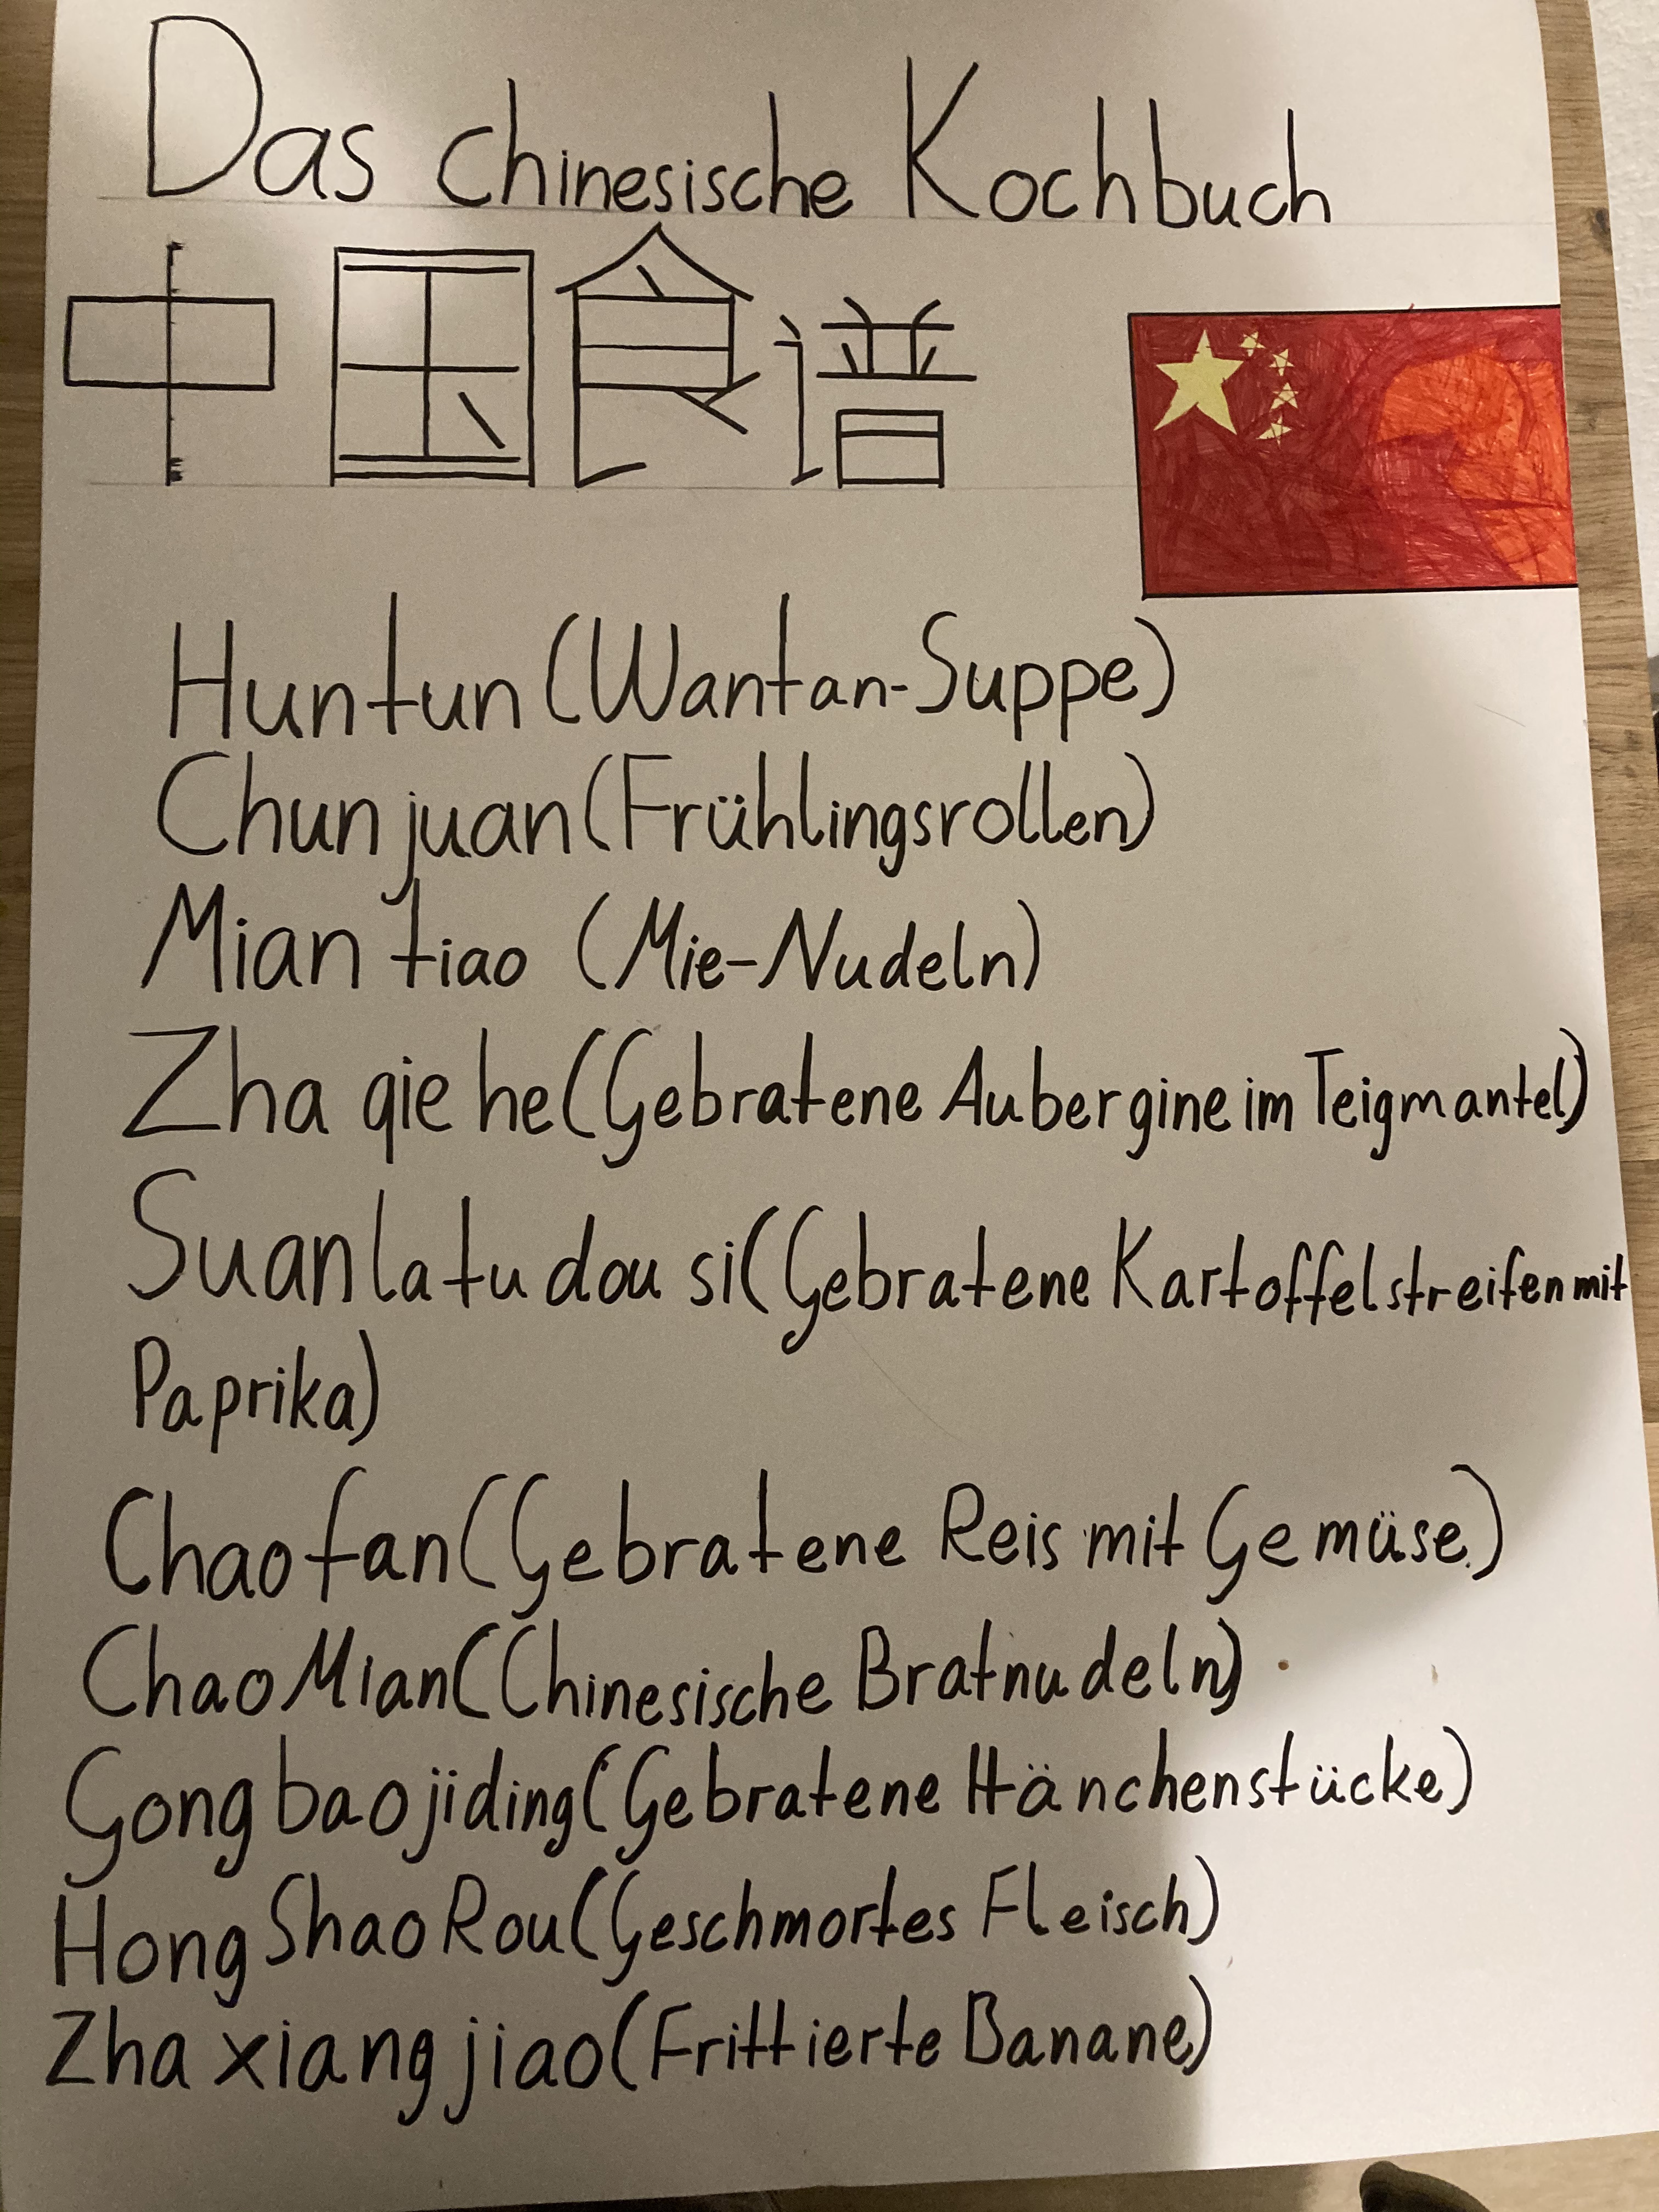 Das chinesische Kochbuch
中国食谱
Huntun (Wantan-Suppe)
Chun juan (Frühlingsrollen)
Mian tiao (Mie-Nudeln)
Zha qie he (Gebratene Aubergine im Teigmantel)
Suan la tu dou si (Gebratene Kartoffelstreifen mit
Paprika)
Chao fan (Gebratene Reis mit Gemüse)
Chao Mian (Chinesische Bratnudeln)
Gong bao jiding (Gebratene Hänchenstücke)
Hong Shao Rou (Geschmortes Fleisch)
Zha xiang jiao (Frittierte Banane)